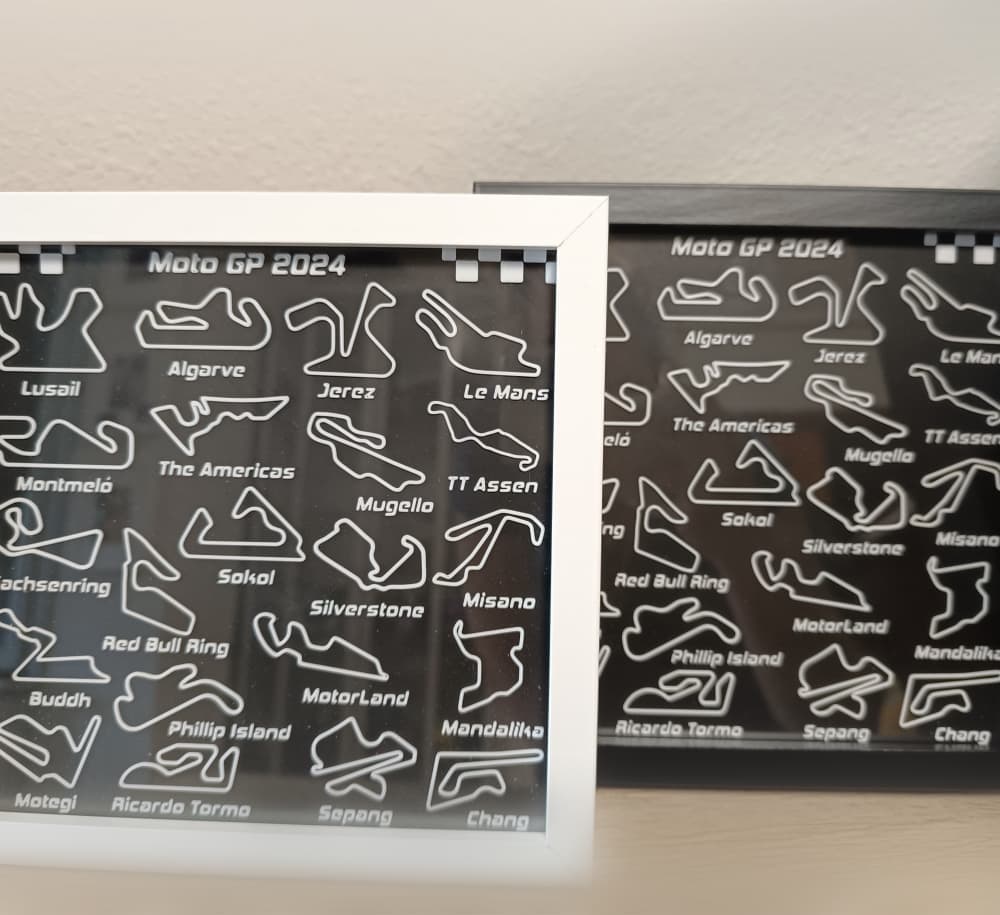 Moto GP 2024
Lusail
Algarve
Jerez
Le Mans
Montmeló
The Americas
Mugello
TT Assen
achsenring
Sokol
Silverstone
Misano
Red Bull Ring
Buddh
Phillip Island
MotorLand
Mandalika
Motegi
Ricardo Tormo
Sepang
Chang
Moto GP 2024
Algarve
Jerez
Le Man
eló
The Americas
Mugello
TT Assen
ng
Sokol
Silverstone
Misano
Red Bull Ring
MotorLand
Mandalika
Phillip Island
Ricardo Tormo
Sepang
Chang